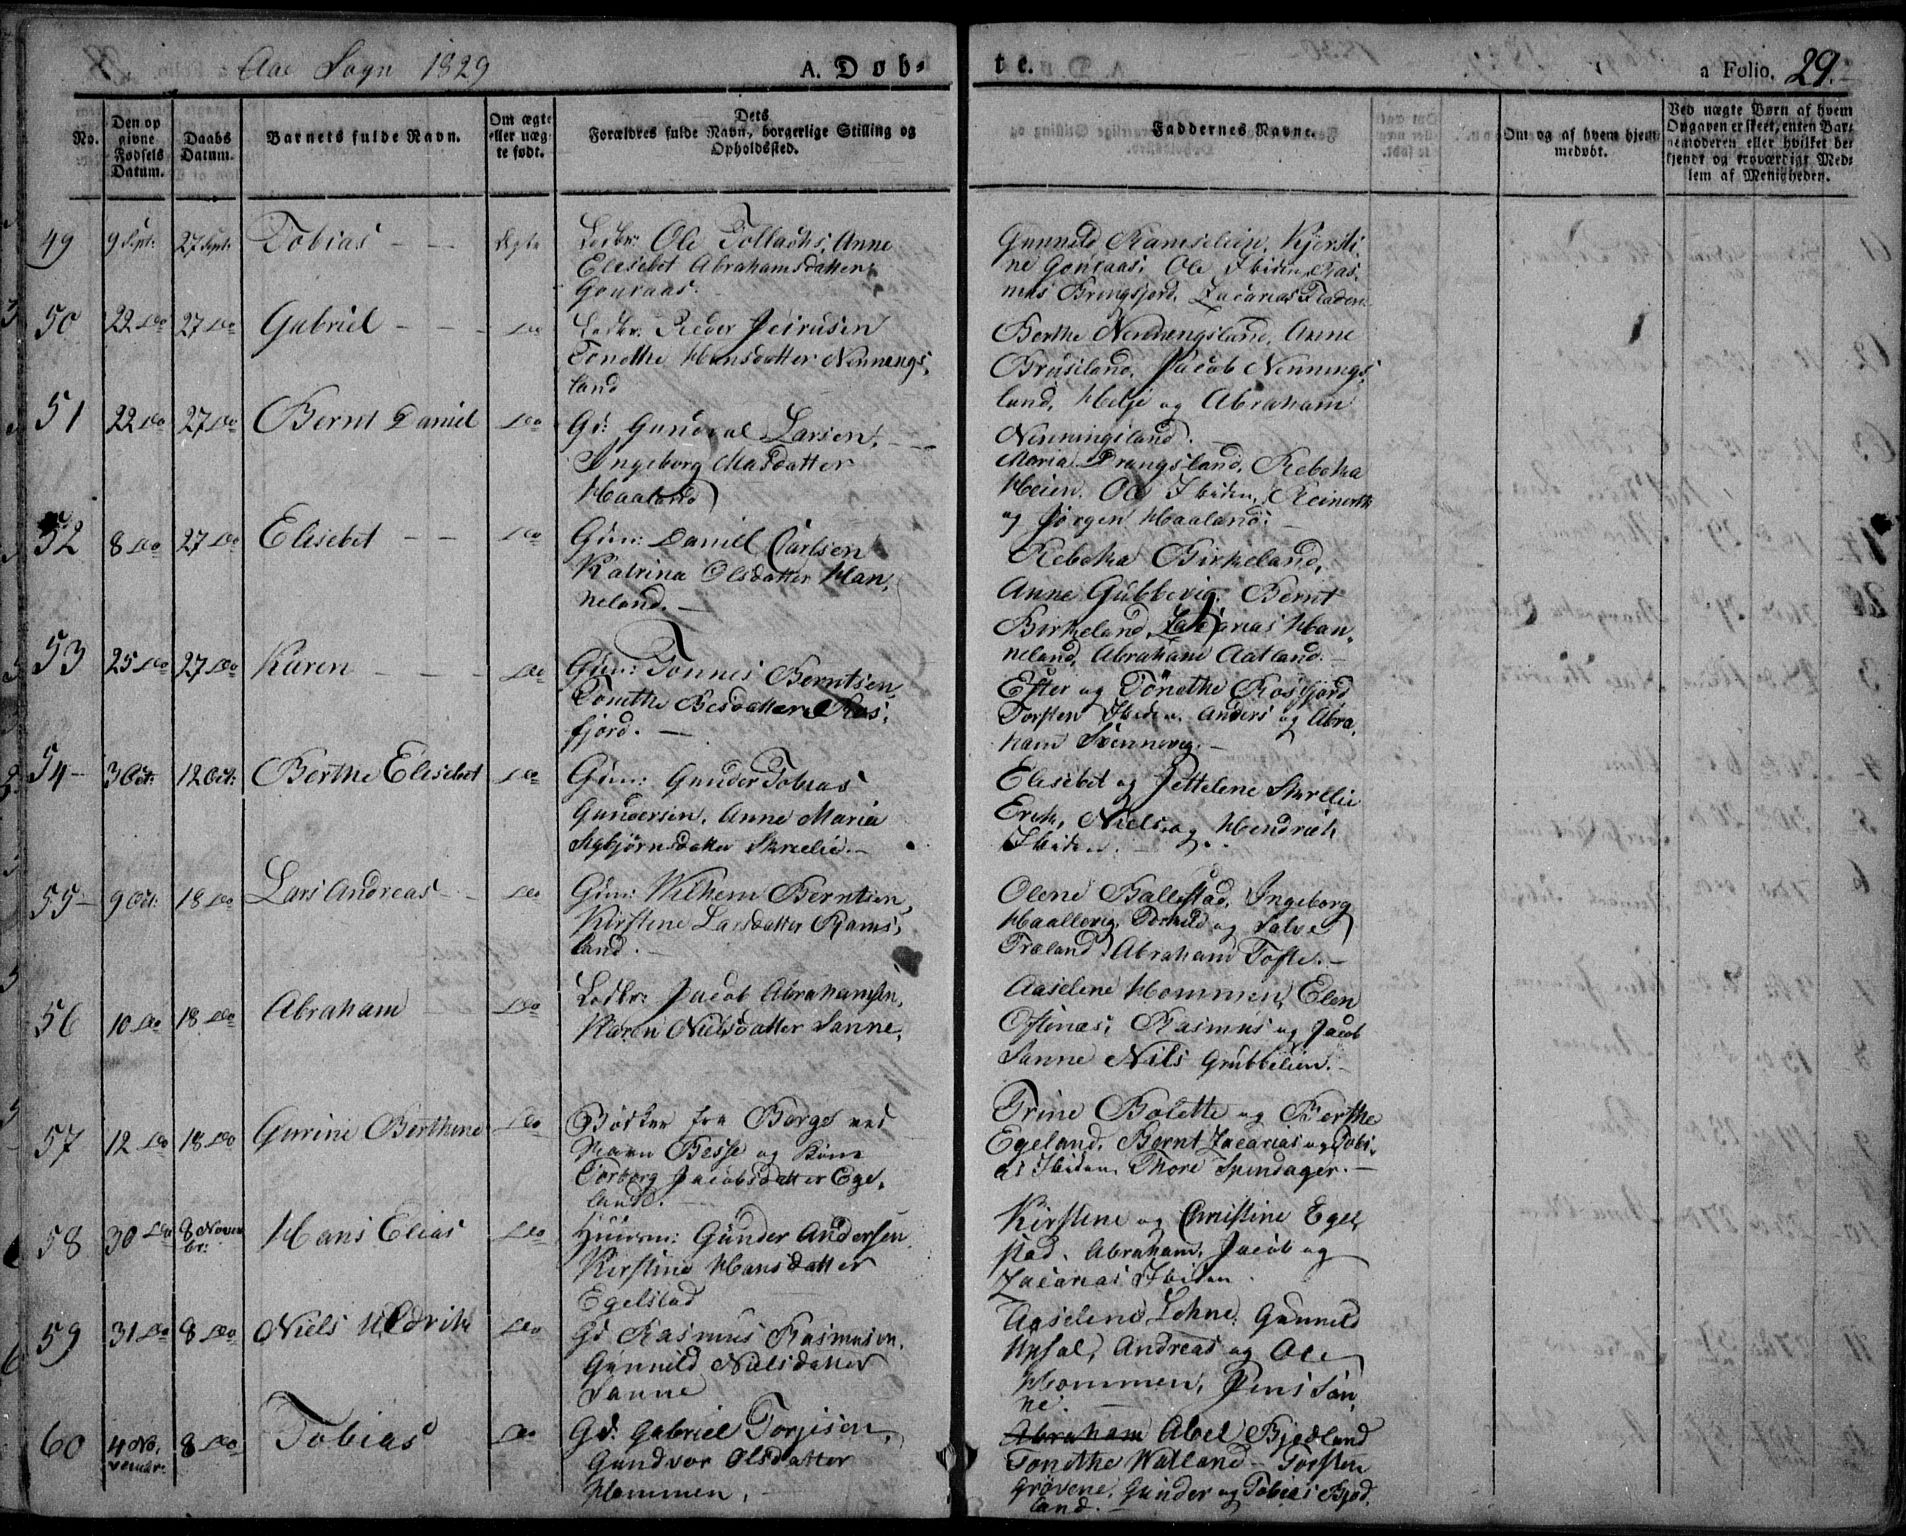 Aae Sogn 1829
A. Døb-
te.
a Folio. 29.
No.
Den op
givne
Fødsels
Datum.
Daabs
Datum.
Barnets fulde Navn.
Om ægte
eller uæg-
te født.
Dets
Forældres fulde Navn, borgerlige Stilling og
Opholdssted.
Faddernes Navne.
Om og af hvem hjem-
medøbt.
Ved uægte Børn af hvem
Opgaven er skeet, enten Bar-
nemoderen eller hvilket be-
kjendt og troværdigt Med-
lem af Menigheden.
49 9 Sept: 27 Sept: Tobias - - Ægte
Ledbr: Ole Tollachs, Anne
Elisebet Abrahamsdatter,
Gonraas.
Gunnild Ramsleie, Kjersti-
ne Gonraas, Ole Ibiden, Ras-
mus Bringsjord, Zacarias Fladen
50 22 Do 27 Do Gabriel - - - Do
Ledbr: Reier Peirusen
Tonethe Hansdatter Nennings-
land
Berthe Nenningsland, Anne
Bruseland, Jacob Nennings-
land, Helje og Abraham
Nenningsland.
51 22 Do 27 Do Bernt Daniel Do
Gd: Gundval Larsen,
Ingeborg Masdatter
Haaland
Maria Drangsland, Rebekka
Heien, Ole Ibiden, Reinerth
og Jørgen Haaland.
52 8 Do 27 Do Elisebet - - Do
Gdm: Daniel Carlsen
Katrina Olsdatter Han-
neland. -
Rebekka Birkeland,
Anne Gubbevig, Bernt
Birkeland, Zacarias Han-
neland, Abraham Aatland. -
53 25 Do 27 Do Karen - - - Do
Gdm: Tønnes Berntsen
Tonethe Besdatter Ros-
fjord. -
Ester og Tonethe Rosfjord
Torsten Ibiden, Anders og Abra-
ham Svennevig. -
54 - 3 Oct: 12 Oct: Berthe Elisebet Do
Gdm: Gunder Tobias
Gundersen, Anne Maria
Asbjørnsdatter Skrelie. -
Elisebet og Pettelene Skrellie
Erik, Niels, og Hendrich
Ibiden. -
55 - 9 Oct: 18 Do Lars Andreas - - Do
Gdm: Wilhem Berntsen,
Kirstine Larsdatter Rams-
land. -
Olene Ballestad, Ingeborg
Haallevig, Torkild og Salve
Træland, Abraham Tofte. -
56 10 Do 18 Do Abraham Do
Ledbr: Jacob Abrahamsen,
Karen Nielsdatter Sanne.
Aaselene Hommen, Elen
Oftenæs, Rasmus og Jacob
Sanne Nils Grubbelien. -
57 12 Do 18 Do Gurine Berthine Do
Bødker fra Borge ved
Navn Besse og Kone
Torborg Jacobsdatter Ege-
land. -
Trine Bolette og Berthe
Egeland, Bernt Zacarias og Tobi-
as Ibiden, Thore Spindager. -
58 30 Do 8 Novem-
br: Hans Elias Do
Huusm: Gunder Andersen
Kirstine Hansdatter
Egelstad
Kirstine og Christine Egel-
stad, Abraham, Jacob og
Zacarias Ibiden.
59 31 Do 8 Do Niels Uldrik Do
Gd Rasmus Rasmusen,
Gunnild Nielsdatter
Sanne
Aaselene Lohne, Gunnild
Upsal, Andreas og Ole
Hommen, Jens San-
ne. -
60 4 No-
vember 8 Do Tobias Do
Gd: Gabriel Torjesen,
Gundvor Olsdatter
Hommen. -
Abraham Abel Bjødland
Tonethe Walland - Torsten
Grøvene, Gunder og Tobias Bjød-
land. -